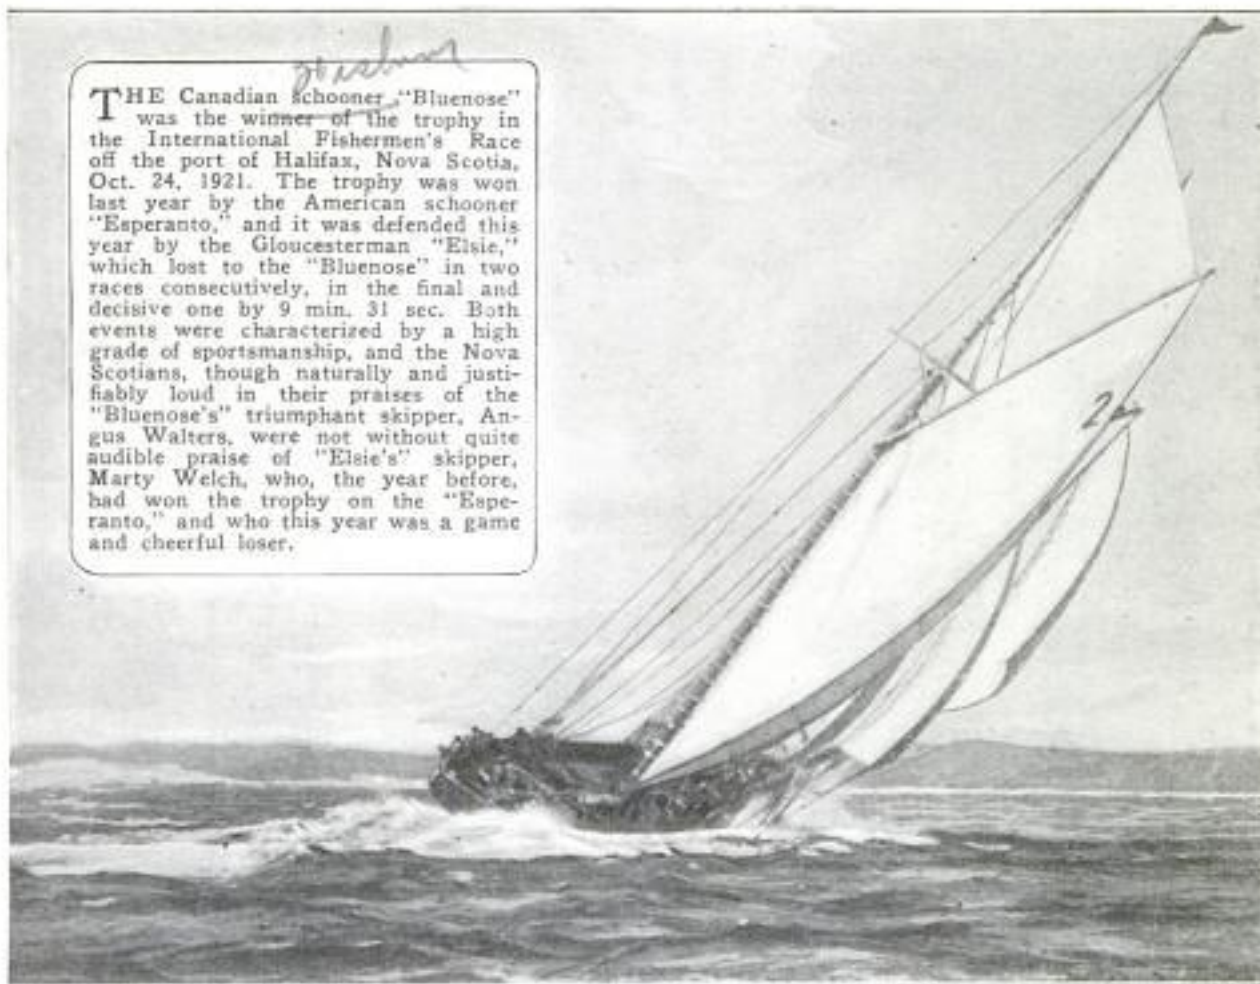 THE Canadian schooner "Bluenose"
was the winner of the trophy in
the International Fishermen's Race
off the port of Halifax, Nova Scotia,
Oct. 24, 1921. The trophy was won
last year by the American schooner
"Esperanto," and it was defended this
year by the Gloucesterman "Elsie,"
which lost to the "Bluenose" in two
races consecutively, in the final and
decisive one by 9 min. 31 sec. Both
events were characterized by a high
grade of sportsmanship, and the Nova
Scotians, though naturally and justi-
fiably loud in their praises of the
"Bluenose's" triumphant skipper, An-
gus Walters, were not without quite
audible praise of "Elsie's" skipper,
Marty Welch, who, the year before,
had won the trophy on the "Espe-
ranto," and who this year was a game
and cheerful loser.
2